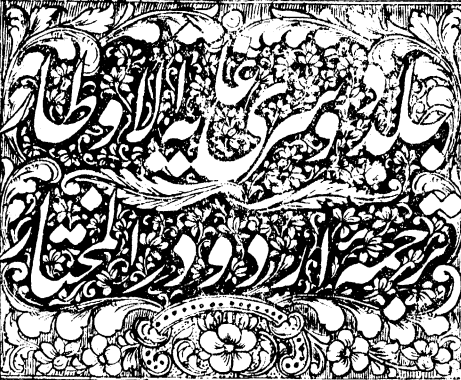 جلد دوسری غایۃ الاوطار
ترجمہ اردو در المختار